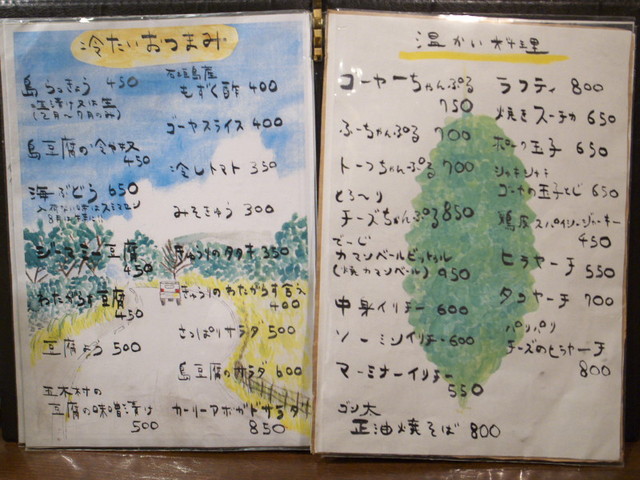 冷たいおつまみ
島らっきょう 450
塩漬け又は生
(2月〜7月のみ)
島豆腐の冷奴 450
海ぶどう 650
入荷ない時はスミマセン
ジーマミー豆腐 450
わたがらす豆腐 450
豆腐よう 500
五木村の
豆腐の味噌漬け 500
石垣島産
もずく酢 400
ゴーヤスライス 400
冷しトマト 350
みそきゅう 300
きゅうりのタタキ 350
きゅうりのわたがらす言え 400
さっぱりサラダ 500
島豆腐のサラダ 600
カーリーアボガドサラダ 850
温かい料理
ゴーヤーちゃんぷる 750
ふーちゃんぷる 700
トーフちゃんぷる 700
とろ〜り
チーズちゃんぷる 850
でーじ
カマンベールビットゥル
(焼カマンベール) 950
中身イリチー 600
ソーミンイリチー 600
マーミナーイリチー 550
ゴン太
正油焼そば 800
ラフティ 800
焼きスーチカ 650
ポーク玉子 650
シャキシャキ
ゴーヤの玉子とじ 650
鶏皮スパイシージャーキー 450
ヒラヤーチ 550
タコヤーチ 700
パリパリ
チーズのヒラヤーチ 800